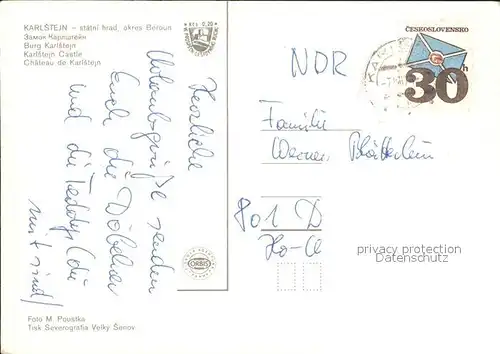 KARLŠTEJN – státní hrad, okres Beroun
Замок Карлштейн
Burg Karlštejn
Karlštejn Castle
Château de Karlštejn
Kčs 0,20
Herzliche
Urlaubsgrüße senden
Euch die Döbelner
und die Teddys (die
mit sind)
Foto M. Povstka
Tisk Severografia Velký Šenov
ORBIS
ČESKOSLOVENSKO
30h
NDR
Familie
Werner
801 D
privacy protection
Datenschutz